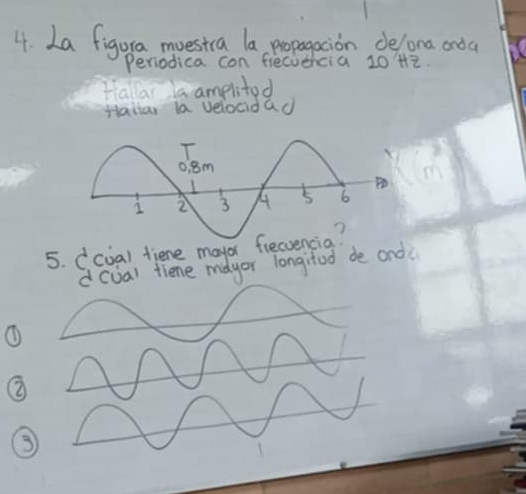 4. La figura muestra la propagación de una onda
Periodica con frecuencia 10 Hz.
Hallar la amplitud
Hallar la velocidad
0,8m
X(m)
1 2 3 4 5 6
5. ¿Cúal tiene mayor frecuencia?
¿Cúal tiene mayor longitud de onda
1
2
3